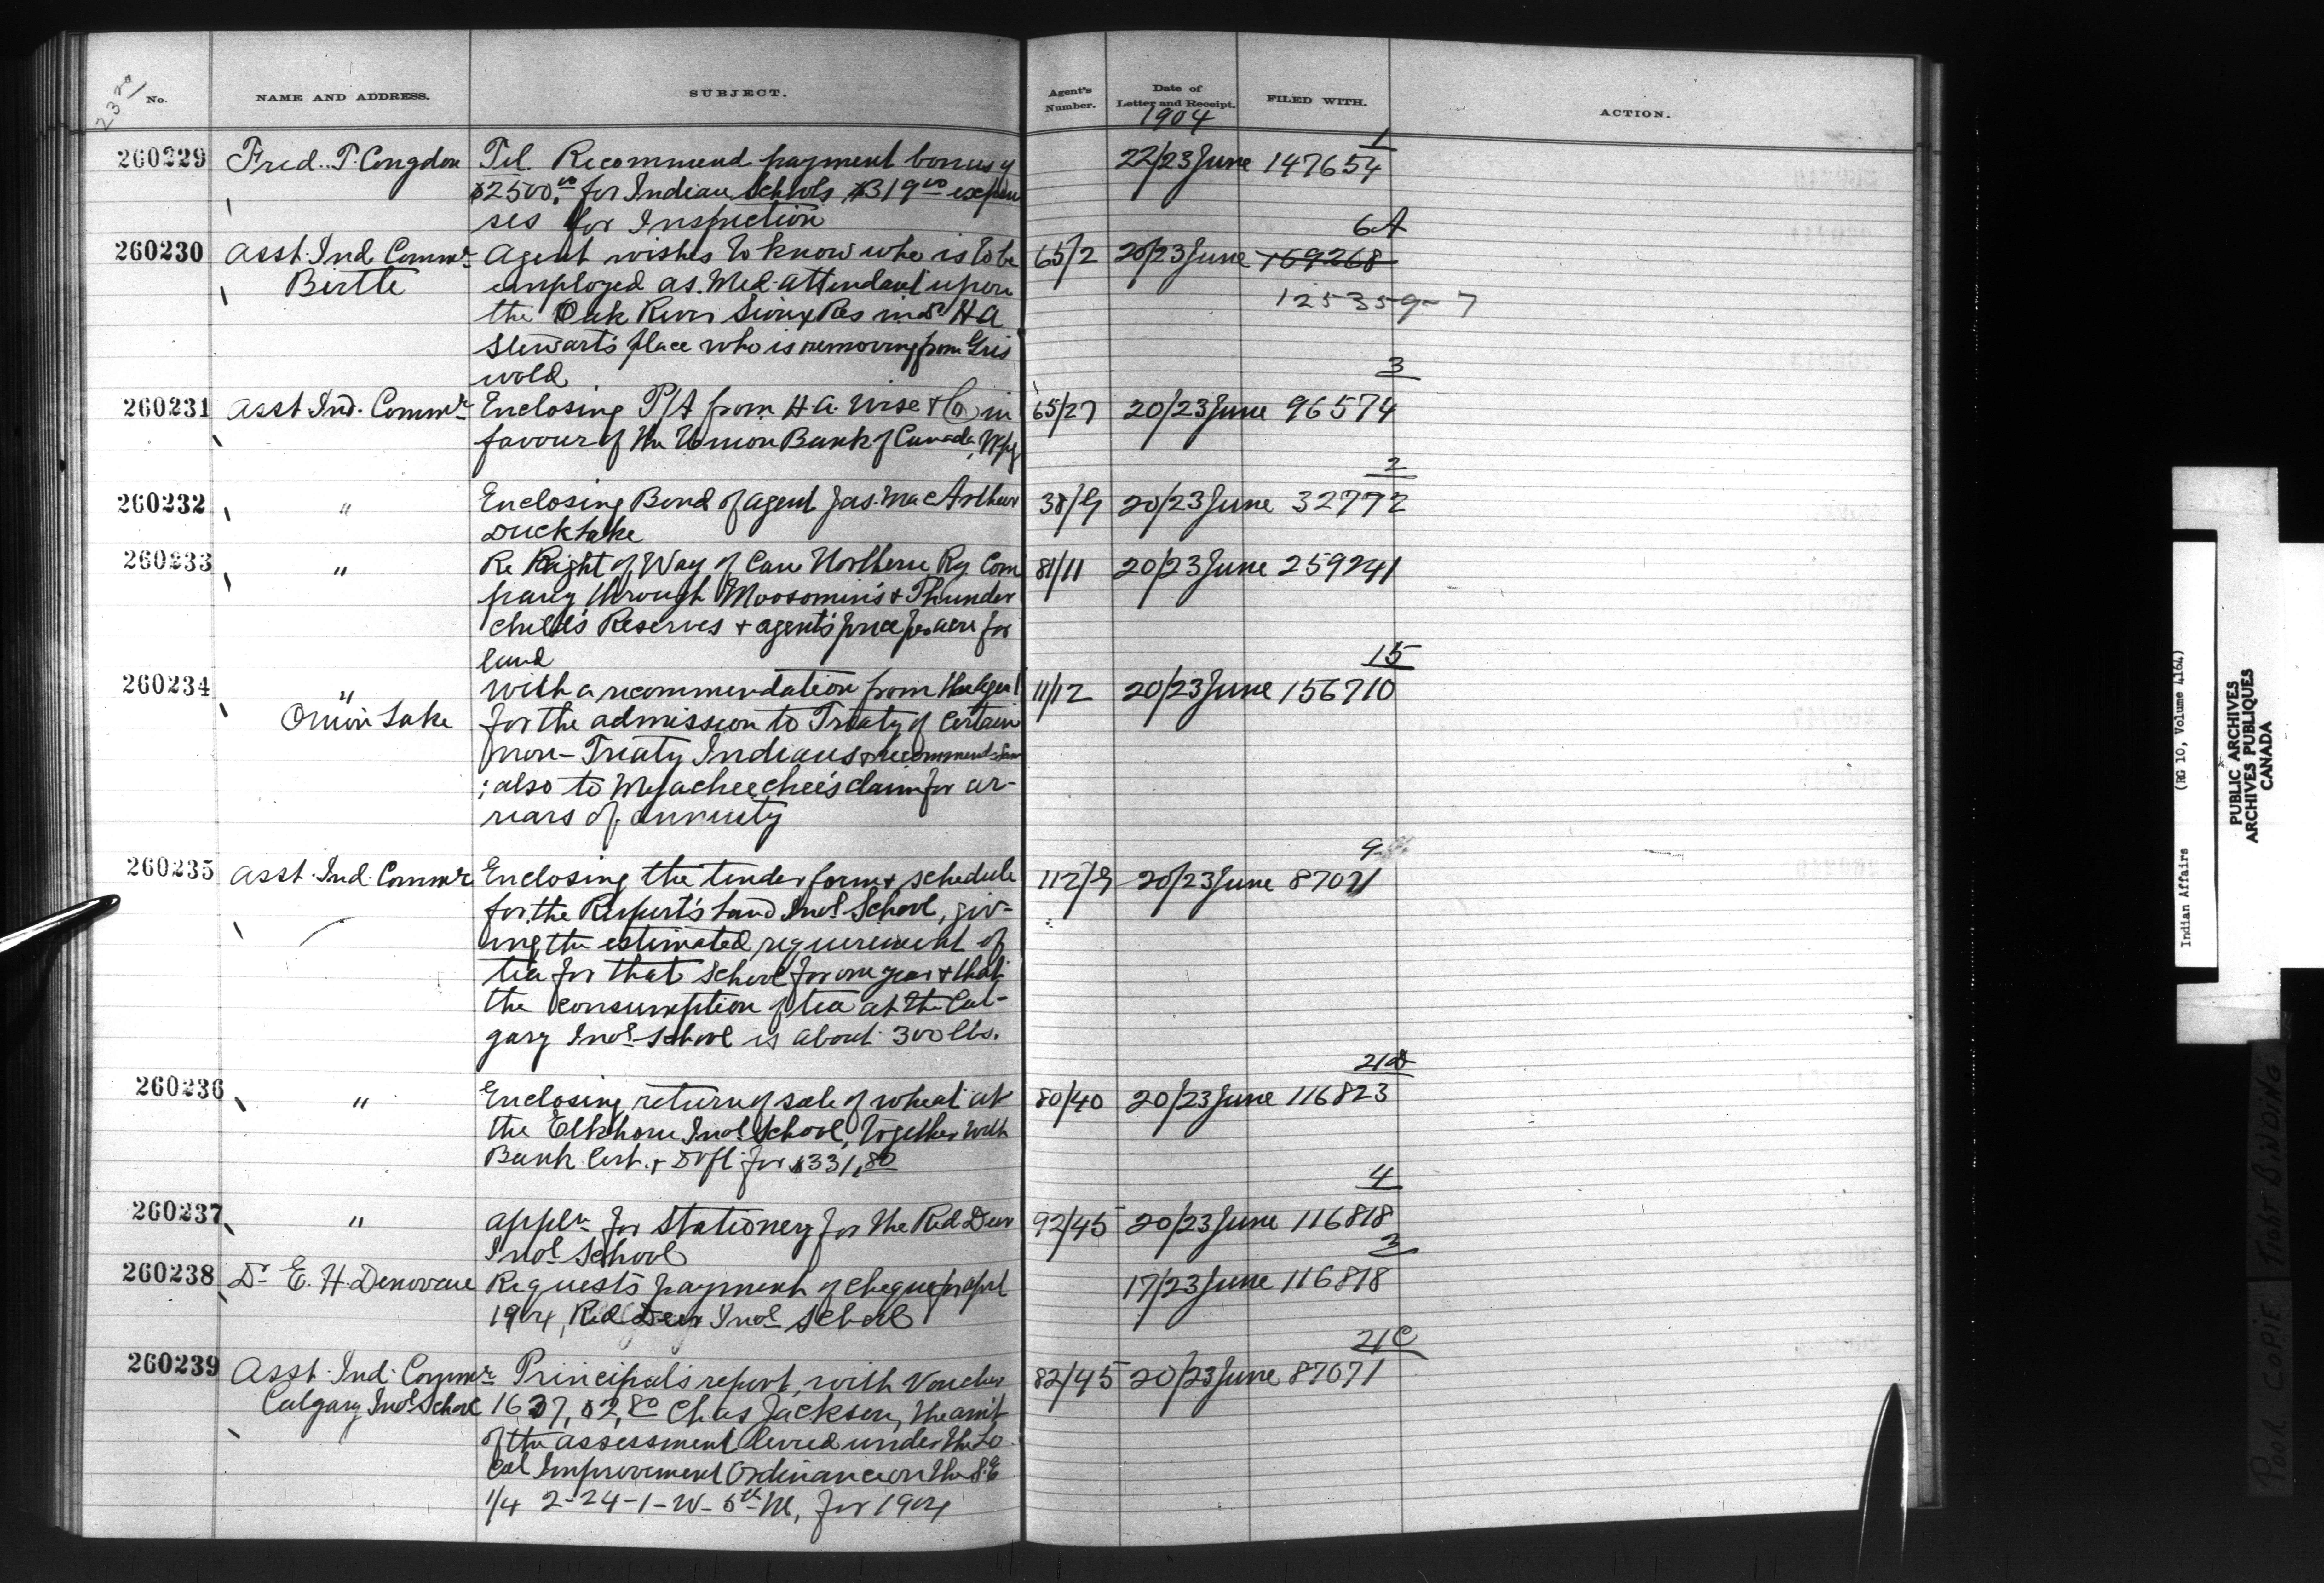 23rd
No. NAME AND ADDRESS. SUBJECT. Agent's Number. Date of Letter and Receipt. FILED WITH. ACTION.
1904
1
260229 Fred. T. Congdon Tel. Recommend payment bonus of 22/23 June 147654
$2500.00 for Indian Schools, $319.00 expen
ses for Inspection
6A
260230 Asst. Ind. Commr Agent wishes to know who is to be 65/2 20/23 June 169268
Birtle employed as Med. attendant upon
125359-7
the Oak River Sioux Res in Dr H A
Stewart's place who is removing from Gris
wold
3
260231 Asst Ind. Commr Enclosing P/A from H. A. Wise & Co in 65/27 20/23 June 96574
favour of the Union Bank of Canada, Wpg
2
260232 " Enclosing Bond of Agent Jas. MacArthur 38/G 20/23 June 32772
Duck Lake
260233 " Re Right of Way of Can Northern Ry. Com 81/11 20/23 June 259241
pany through Moosomin's & Thunder
child's Reserves & agent's price per acre for
land
15
260234 " With a recommendation from the Agent 11/12 20/23 June 156710
Onion Lake for the admission to Treaty of certain
non-Treaty Indians & recommend
; also to claim for ar-
rears of annuity
9
260235 Asst. Ind. Commr Enclosing the tender form & schedule 112/9 20/23 June 87071
for the Rupert's Land Indl School, giv-
ing the estimated requirement of
tea for that School for one year & that
the consumption of tea at the Cal-
gary Indl School is about 300 lbs.
260236 " Enclosing return of sale of wheat at 80/40 20/23 June 116823
the Elkhorn Indl School, together with
Bank Cert. & Dft for $331.80
4
260237 " Appln for Stationery for the Red Deer 92/45 20/23 June 116818
Indl School
3
260238 Dr E. H. Denovan Requests payment of cheque for April 17/23 June 116818
1904, Red Deer Indl School
21C
260239 Asst. Ind. Commr Principal's report, with Voucher 82/45 20/23 June 87071
Calgary Indl School 1637, $2.80 Chas Jackson, the amt
of the assessment levied under the Lo
cal Improvement Ordinance on the S.E
1/4 2-24-1-W-5th M, for 1904
Indian Affairs (RG 10, Volume 4164)
PUBLIC ARCHIVES
ARCHIVES PUBLIQUES
CANADA
POOR COPIE TIGHT BINDING